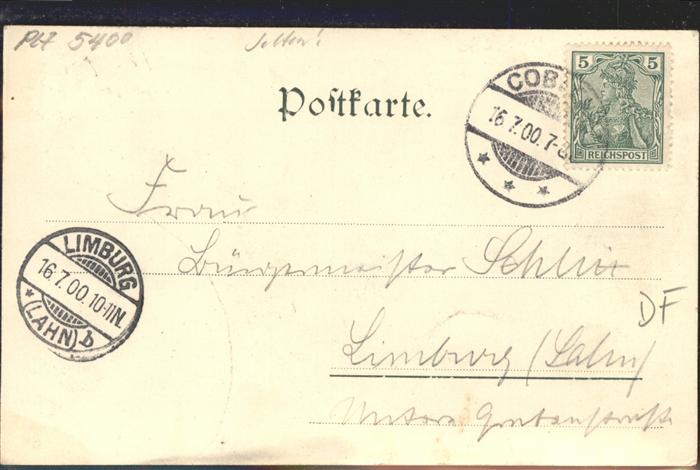 PLZ 5400 Selten!
Postkarte.
COB
16.7.00.7-8
5 5
REICHSPOST
Frau
Bürgermeister Schlitt
LIMBURG
16.7.00.10-11N.
* (LAHN) b
DF
Limburg (Lahn)
Untere Grabenstraße